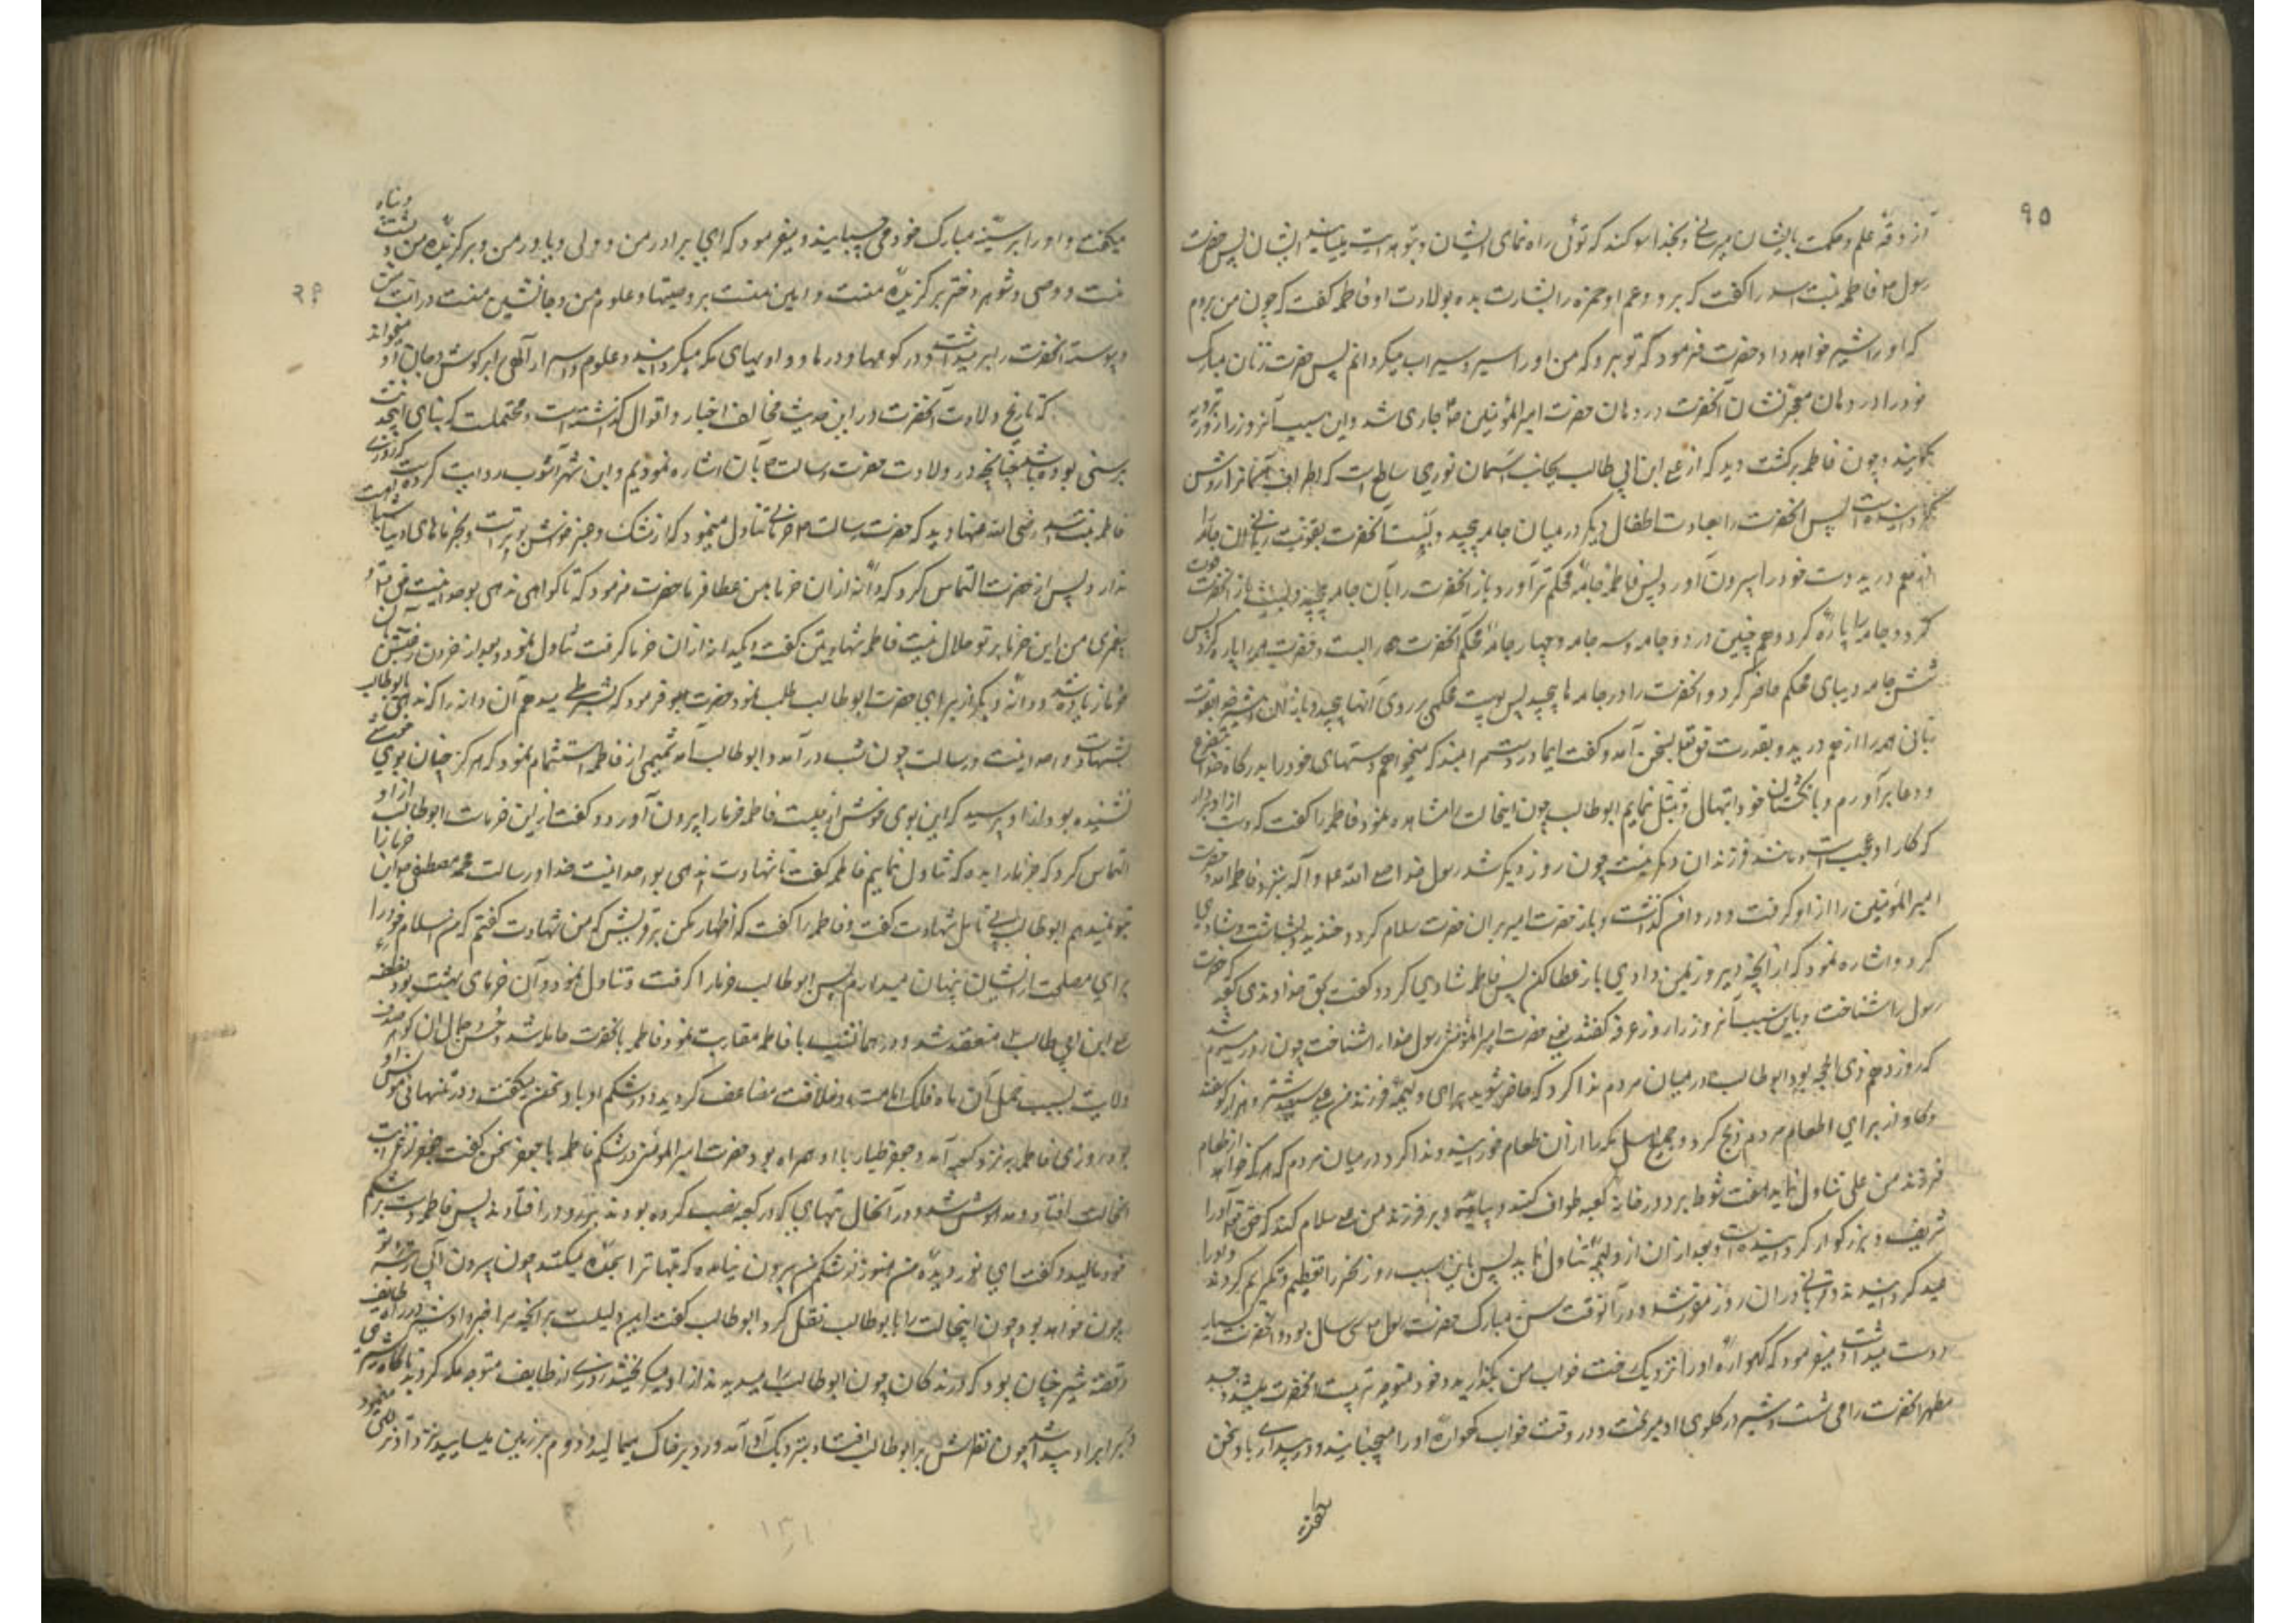 ۹۵
آزوقهٔ علم و حکمت بایشان میرسانی و بخدا سوکند که توئی راه نمای ایشان و بتو هدایت مییابند ایشان پس حضرت
رسول ص فاطمه بنت اسد را کفت که برو و عم او حمزه را بشارت بده بولادت او فاطمه کفت که چون من بروم
که او را شیر خواهد داد حضرت فرمود که تو برو که من او را سیر و سیراب میکردانم پس حضرت زبان مبارک
خود را در دهان معجز نشان آنحضرت در دهان حضرت امیرالمؤمنین جاری شد و باین سبب آنروز را روز ترویه
میکویند و چون فاطمه برکشت دید که از علی ابن ابی طالب بجانب آسمان نوری ساطع است که اطراف آسمانرا روشن
کردانیده است پس آنحضرت را بعادت اطفال دیکر در میان جامه پیچید و بست آنحضرت بقوت ربانی آن جامه را
از هم درید و دست خود را بیرون آورد پس فاطمه جامهٔ محکم تر آورد و باز آنحضرت را بآن جامه پیچید و بست باز آنحضرت قوت
کرد و جامه را پاره کرد و همچنین در دو جامه و سه جامه و چهار جامه محکم آنحضرت را بست و حضرت همه را پاره کرد پس
شش جامه دیبای محکم حاضر کرد و آنحضرت را در جامه ها پیچید پس پوست محکمی بر روی آنها پیچید و باز آن شیر خدا بقوت
ربانی همه را از هم درید و بقدرت حق تعالی بسخن آمد و کفت ایمادر دستم را مبند که میخواهم دستهای خود را بدرکاه خدا بتضرع
و دعا برآورم و بانکشتان خود ابتهال و تبتل نمایم ابوطالب چون اینحالت را مشاهده نمود فاطمه را کفت که دست از او بردار
که کار او عجیب است و مانند فرزندان دیکر نیست چون روز دیکر شد رسول خدا صلی الله علیه و آله بنزد فاطمه آمد و حضرت
امیرالمؤمنین را از او کرفت و در دامن کذاشت و باز حضرت امیر بر آن حضرت سلام کرد و خندید و بشاشت و شادی
کرد و اشاره نمود که از آنچه دیروز بمن دادی باز عطا کن پس فاطمه شادی کرد و کفت بحق خداوند کعبه که حضرت
رسول را شناخت و باین سبب آنروز را روز عرفه کفتند یعنی حضرت امیرالمؤمنین رسول خدا را شناخت چون روز سیوم شد
که روز دهم ذی الحجه بود ابوطالب در میان مردم ندا کرد که حاضر شوید برای ولیمه فرزند من علی و سیصد شتر و هزار کوسفند
و کاو از برای اطعام مردم ذبح کرد و جمیع اهل مکه را از آن طعام خورانید و ندا کرد در میان مردم که هر که خواهد از طعام
فرزند من علی تناول نماید هفت شوط بر دور خانه کعبه طواف کند و بیاید و بر فرزند من علی سلام کند که حق تعالی او را
شریف و بزرکوار کردانیده است و بعد از آن از ولیمه تناول نماید پس باین سبب روز نحر را تعظیم و تکریم کردند و او را
عید کردانیدند و قربانی در آن روز مقرر شد و در آنوقت سن مبارک حضرت رسول ص سی سال بود و آنحضرت بسیار
دوست میداشت و میفرمود که کهواره او را نزدیک رخت خواب من بکذارید و خود متوجه تربیت آنحضرت میشد و جسد
مطهر آنحضرت را می شست و شیر در کلوی او میریخت و در وقت خواب کهواره او را میجنبانید و در بیداری با او سخن
میکفت
میکفت و او را بر سینه مبارک خود می چسبانید و میفرمود که این برادر من و ولی و یاور من و برکزیده من و پشت و پناه
منست و وصی و شوهر دختر برکزیده منست و امین منست بر وصیتها و علوم من و جانشین منست در امت من
و پیوسته آنحضرت را بر میداشت و در کوهها و درها و وادیهای مکه میکردانید و علوم و اسرار آلهی را بر کوش جان او میخواند
که تاریخ ولادت آنحضرت در این حدیث مخالف اخبار و اقوال کذشته است و محتملست که بنای این حدیث
برسنی بوده باشد چنانچه در ولادت حضرت رسالت ص بآن اشاره نمودیم و ابن شهر آشوب روایت کرده است که روزی
فاطمه بنت اسد رضی الله عنها دید که حضرت رسالت ص خرمائی تناول مینمود که از مشک و عنبر خوشبوتر است و بخرماهای دنیا شباهت
ندارد پس از حضرت التماس کرد که دانه از آن خرما بمن عطا فرما حضرت فرمود که تا کواهی ندهی بوحدانیت حق تعالی
پیغمبری من این خرما بر تو حلال نیست فاطمه شهادتین کفت و یکدانه از آن خرما کرفت تناول نمود و بعد از خوردن آن رغبتش
خرما زیاده شد و دانه دیکر از برای حضرت ابوطالب طلب نمود حضرت فرمود که بشرطی میدهم آن دانه را که ندهی بابوطالب
بشهادت وحدانیت و رسالت چون شب در آمد و ابوطالب آمد شمیمی از فاطمه استشمام نمود که هرکز چنان بوی
نشنیده بود از او پرسید که این بوی خوش از چیست فاطمه خرما را بیرون آورد و کفت از این خرماست ابوطالب از او
التماس کرد که خرما را بده که تناول نمایم فاطمه کفت تا شهادت ندهی بوحدانیت خدا و رسالت محمد مصطفی ص این خرما را
بتو نمیدهم ابوطالب بی تأمل شهادت کفت و فاطمه را کفت که اظهار مکن بر قریش که من شهادت کفتم که من اسلام خود را
برای مصلحت از ایشان پنهان میدارم پس ابوطالب خرما را کرفت و تناول نمود و آن خرمای بهشت بود نطفه
علی ابن ابی طالب منعقد شد و در همانشب با فاطمه مقاربت نمود فاطمه بآنحضرت حامله شد و حسن و جمال آن کوهر صدف
ولایت بسبب حمل آن ماه فلک امامت و خلافت مضاعف کردید و در شکم او با او سخن میکفت و در تنهائی مونس او
بود روزی فاطمه بنزد کعبه آمد و جعفر طیار با او همراه بود حضرت امیرالمؤمنین در شکم فاطمه با جعفر سخن کفت جعفر از غرابت
آنحالت افتاد و مدهوش شد و در آنحال بتهائی که در کعبه نصب کرده بودند برو در افتادند پس فاطمه دست بر شکم
خود مالید و کفت ای نور دیده من هنوز از شکم من بیرون نیامده که بتها ترا سجده میکنند چون بیرون آئی رتبه تو
چون خواهد بود چون اینحالت را بابوطالب نقل کرد ابوطالب کفت این دلیلست بر آنچه مرا خبر داد شیر در راه طایف
و قصه شیر چنان بود که درندکان چون ابوطالب را میدیدند از او میکریختند روزی از طایف متوجه مکه کردید ناکاه شیری
در برابر او پیدا شد چون نظرش بر ابوطالب افتاد بنزدیک او آمد و رو بر خاک میمالید و دم بر زمین میسایید